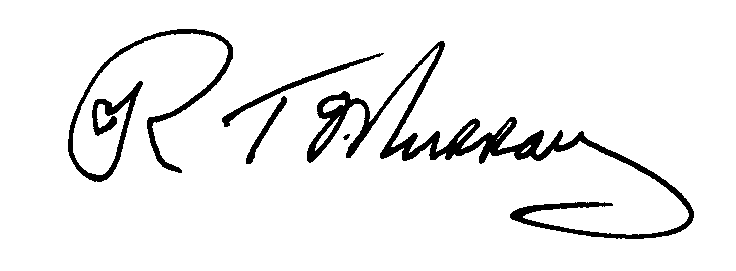 R T J. Murray